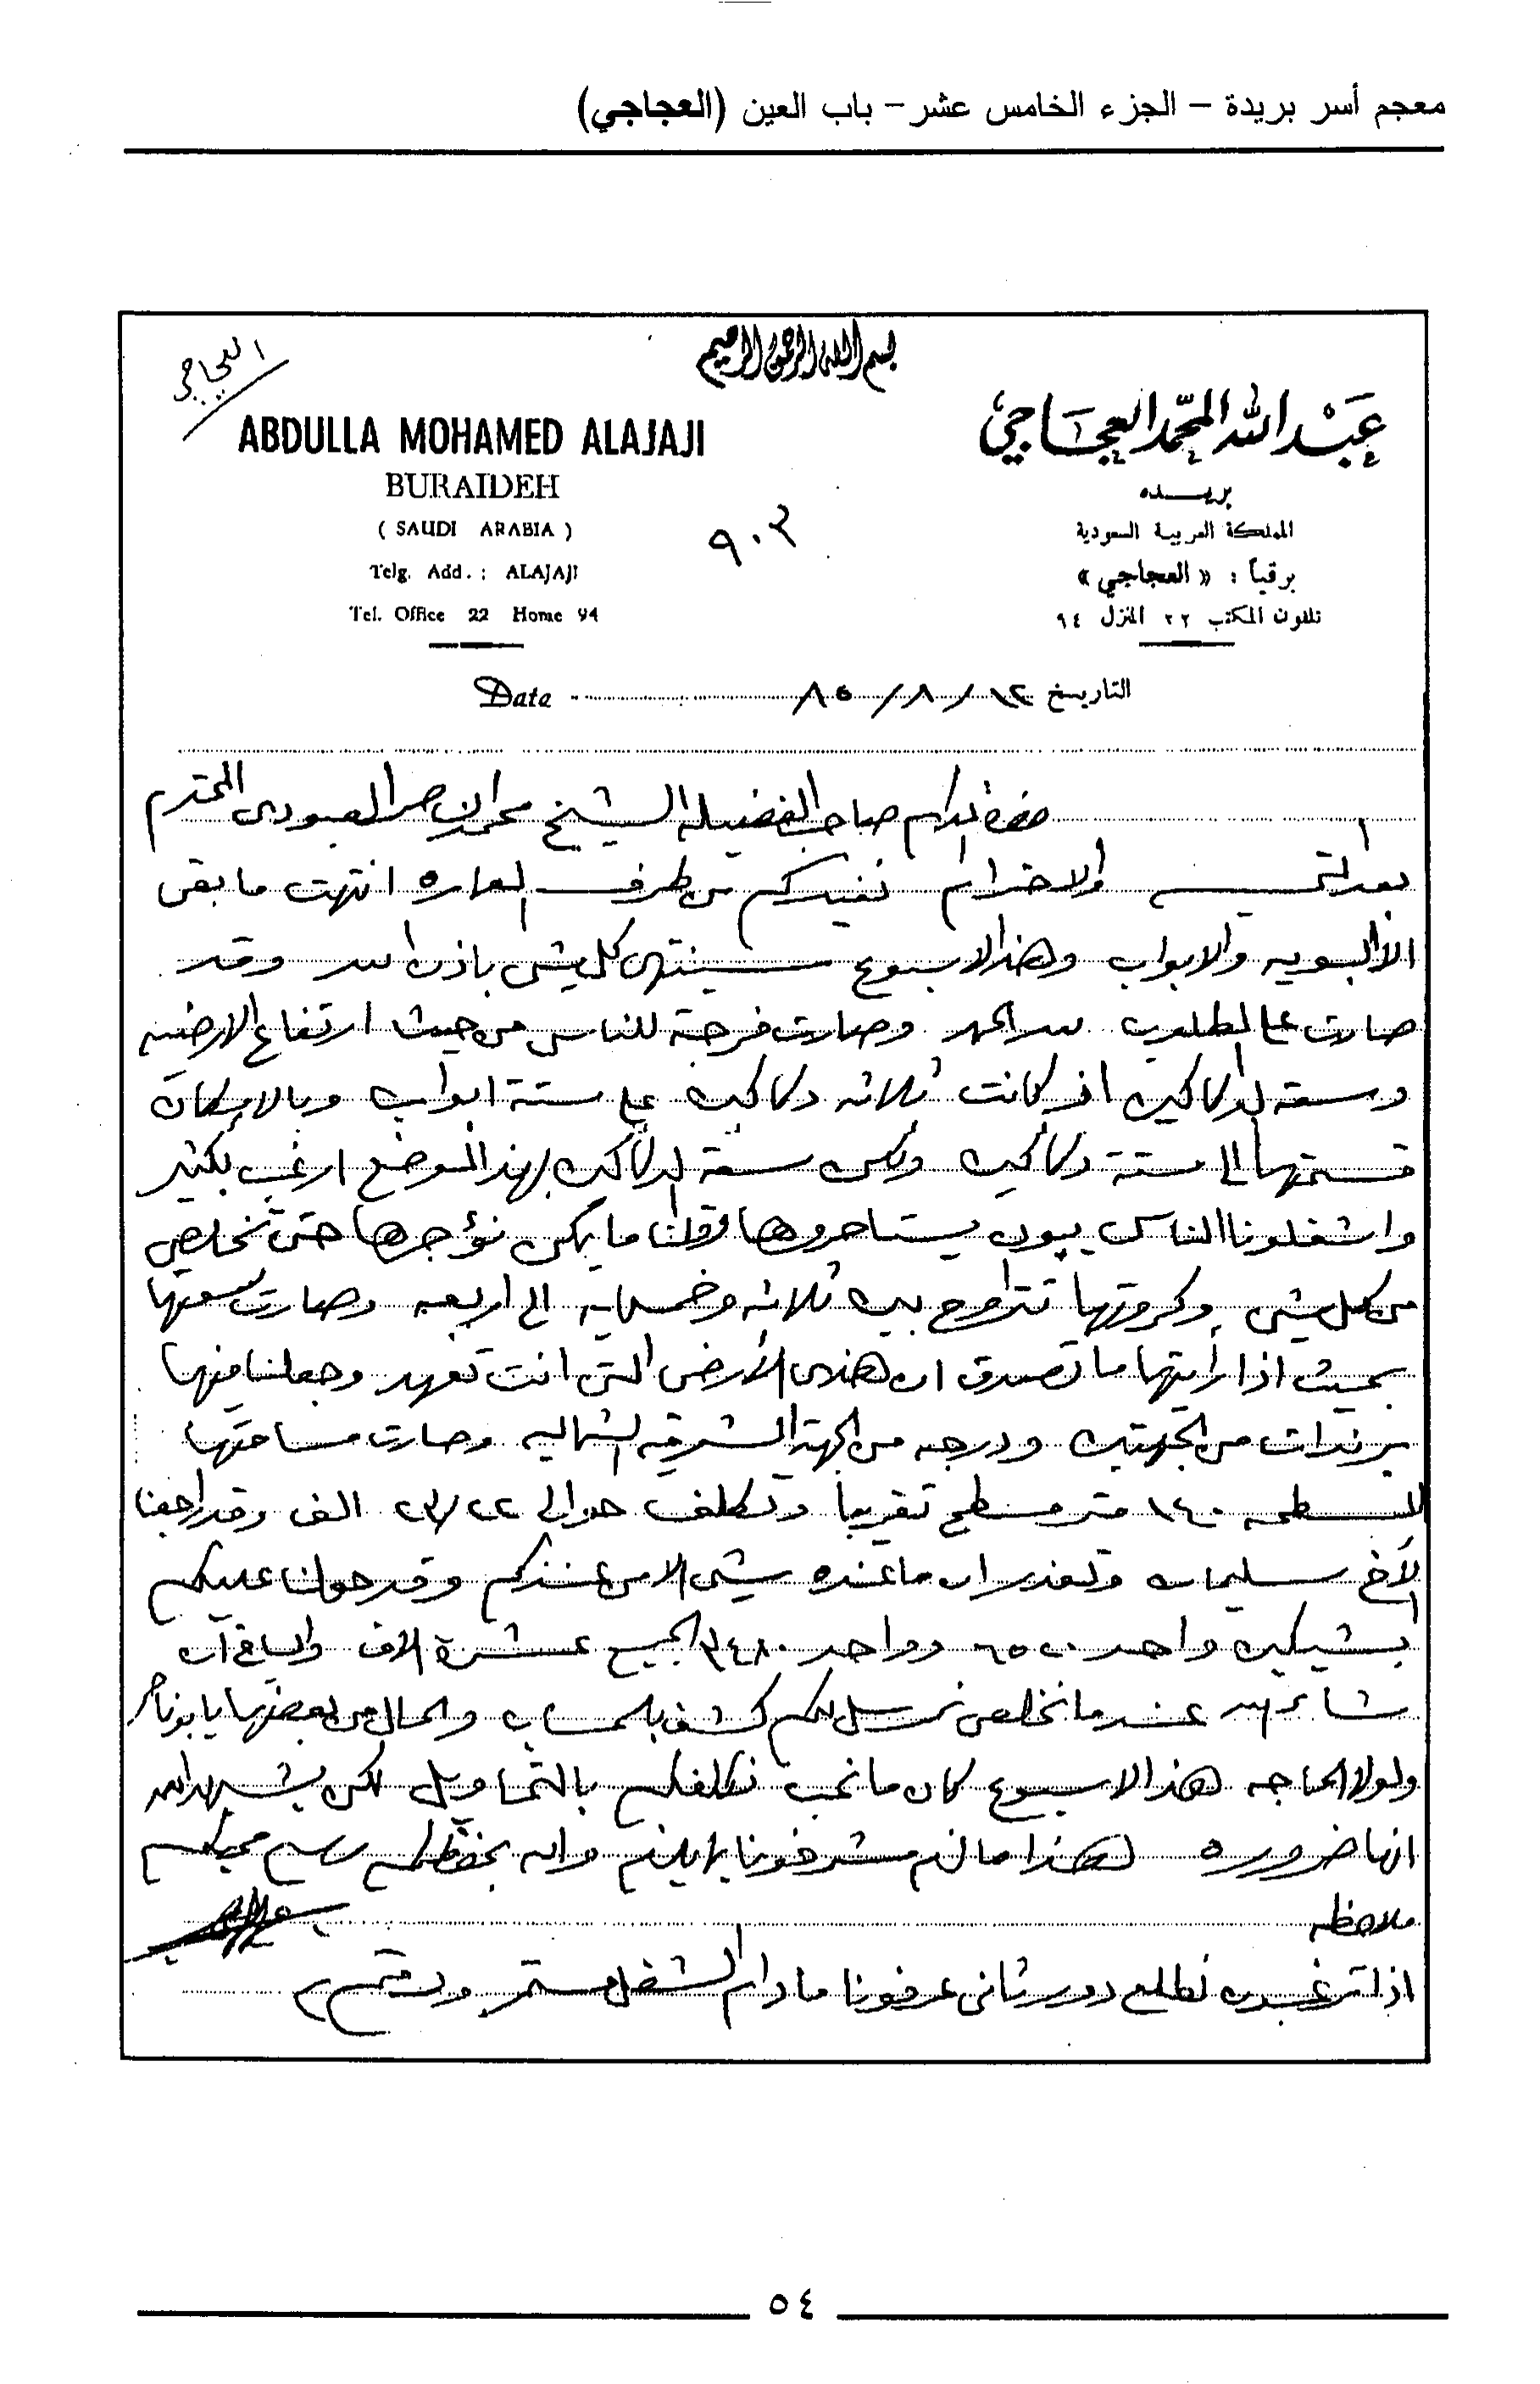 معجم أسر بريدة – الجزء الخامس عشر – باب العين (العجاجي)
العجاجي
بسم الله الرحمن الرحيم
ABDULLA MOHAMED ALAJAJI
عبد الله المحمد العجاجي
BURAIDEH
بريده
( SAUDI ARABIA )
المملكة العربية السعودية
٩٠٢
Telg. Add. : ALAJAJI
برقياً : « العجاجي »
Tel. Office 22 Home 94
تلفون المكتب ٢٢ المنزل ٩٤
التاريخ ١٢/٨/٨٥ Date
حضرة المكرم صاحب الفضيله الشيخ محمد الناصر العبودى المحترم
بعد التحيه والاحترام نفيدكم من طرف العماره انتهت ما بقى
الا البويه والابواب وهذا الاسبوع سينتهى كل شى باذن الله وقد
صارت على المطلوب لله الحمد وصارت فرجة للناس من حيث ارتفاع الارضيه
وسعة الدكاكين اذ كانت ثلاثه دكاكين على ستة ابواب وبالامكان
قسمتها الى ستة دكاكين ولكن سعة الدكاكين بهذا الموضع ارغب بكثير
واشغلونا الناس يبون يستاجروها وقلنا ما يمكن نؤجرها حتى نخلص
من كل شى وكروتها تتراوح بين ثلاثه وخمسمايه الى اربعه وصارت سعتها
بحيث اذا رأيتها ما تصدق ان هذى الأرض التى انت تعهد وجعلنا فيها
برندات من الجهتين ودرجه من الجهة الشرقيه الشماليه وصارت مساحتها
المسطحه ١٤٠ متر مسطح تقريباً وتكلف حوالى ٢٢/٢٣ الف وقد راجعنا
الأخ سليمان وتعذر ان ما عنده شى الا من عندكم وقد حولنا عليكم
بشيكين واحد ٦٥٢٠ وواحد ٣٤٨٠ الجميع عشرة الاف والباقى ان
شاء الله عندما نخلص نرسل لكم كشف بالحساب والحال من بعضها يا بو ناصر
ولولا الحاجه هذا الاسبوع كان ما نحب نكلفكم بالتحاويل لكن يشهد الله
انها ضروره لهذا ما لزم شرفونا بما يلزم والله يحفظكم محبكم
ملاحظه
اذا ترغبون نطلع دور ثانى عرفونا ما دام الشغل مستمر ودمتم
٥٤